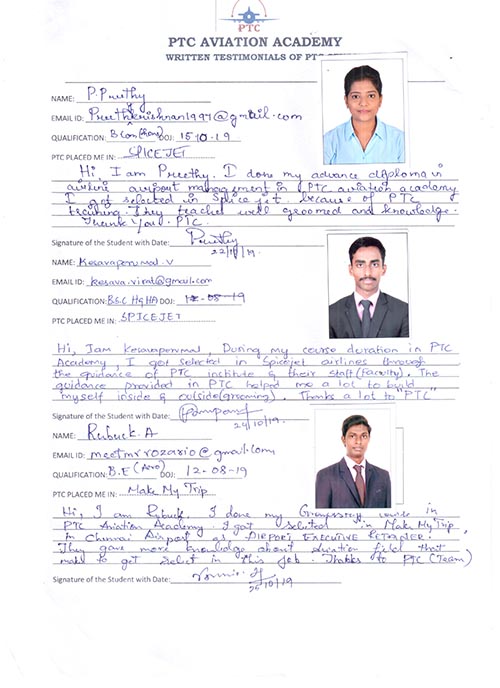 PTC
PTC AVIATION ACADEMY
WRITTEN TESTIMONIALS OF PTC
NAME: P. Preethy
EMAIL ID: Preethkrishnan1997@gmail.com
QUALIFICATION: B.Com(Hons) DOJ: 15-10-19
PTC PLACED ME IN: SPICEJET
Hi, I am Preethy. I done my advance diploma in
airline airport management in PTC aviation academy
I got selected in Spice jet. because of PTC
teaching. They teached well groomed and knowledge.
Thank you PTC.
Signature of the Student with Date: Preethy
22/10/19.
NAME: Kesavaperumal.V
EMAIL ID: kesava.viral@gmail.com
QUALIFICATION: B.SC H&HA DOJ: 12-08-19
PTC PLACED ME IN: SPICEJET
Hi, I am Kesavaperumal, During my course duration in PTC
Academy, I got selected in Spicejet airlines through
the guidance of PTC institute & their staff (Faculty). The
guidance provided in PTC helped me a lot to build
myself inside & outside(grooming). Thanks a lot to "PTC"
Signature of the Student with Date:
24/10/19.
NAME: Rubuck. A
EMAIL ID: meetmrrozario@gmail.com
QUALIFICATION: B.E (Aero) DOJ: 12-08-19
PTC PLACED ME IN: Make My Trip
Hi, I am Rubuck. I done my course in
PTC Aviation Academy. I got selected in Make My Trip
in Chennai Airport as AIRPORT EXECUTIVE RETAINER.
They gave more knowledge about aviation field that
make to get select in this job. Thanks to PTC (Team)
Signature of the Student with Date:
25/10/19